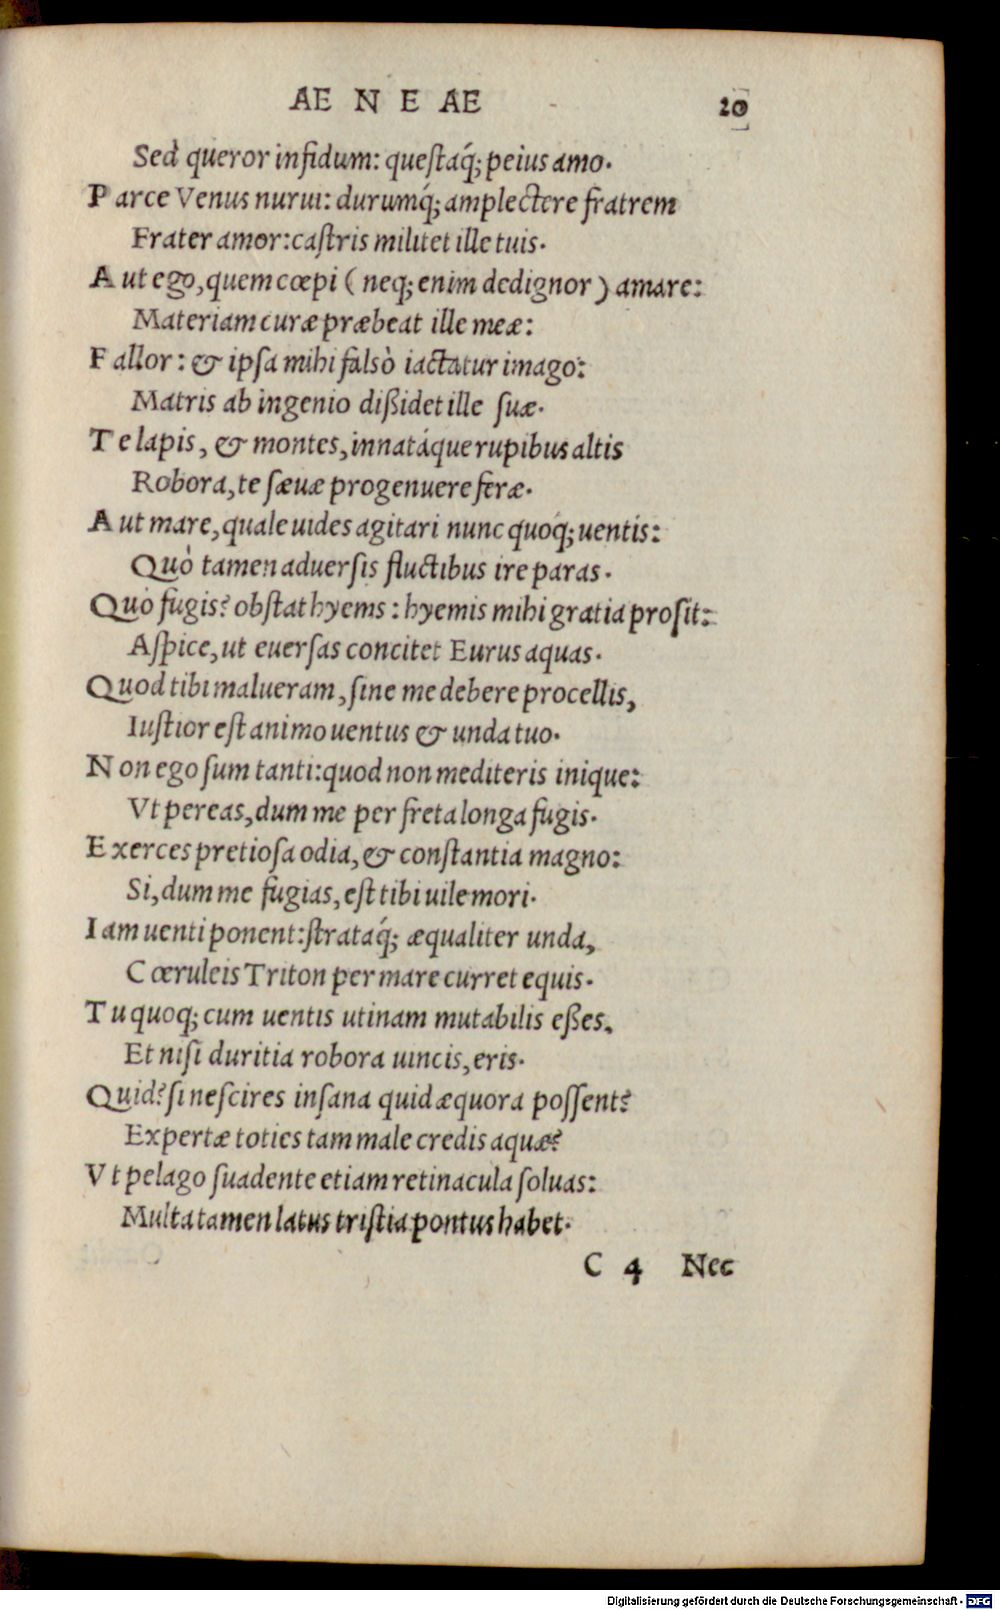 AE N E AE 20
Sed queror infidum: questaq́; peius amo.
Parce Venus nurui: durumq́; amplectere fratrem
Frater amor: castris militet ille tuis.
Aut ego, quem cœpi (neq; enim dedignor) amare:
Materiam curæ præbeat ille meæ:
Fallor: & ipsa mihi falsò iactatur imago:
Matris ab ingenio dißidet ille suæ.
Te lapis, & montes, innatáque rupibus altis
Robora, te sæuæ progenuere feræ.
Aut mare, quale uides agitari nunc quoq́; uentis:
Quò tamen aduersis fluctibus ire paras.
Quo fugis? obstat hyems: hyemis mihi gratia prosit:
Aspice, ut euersas concitet Eurus aquas.
Quod tibi malueram, sine me debere procellis,
Iustior est animo uentus & unda tuo.
Non ego sum tanti: quod non mediteris inique:
Vt pereas, dum me per freta longa fugis.
Exerces pretiosa odia, & constantia magno:
Si, dum me fugias, est tibi uile mori.
Iam uenti ponent: strataq́; æqualiter unda,
Cœruleis Triton per mare curret equis.
Tu quoq; cum uentis utinam mutabilis eßes,
Et nisi duritia robora uincis, eris.
Quid? si nescires insana quid æquora possent?
Expertæ toties tam male credis aquæ?
Vt pelago suadente etiam retinacula soluas:
Multa tamen latus tristia pontus habet.
C 4 Nec
Digitalisierung gefördert durch die Deutsche Forschungsgemeinschaft - DFG